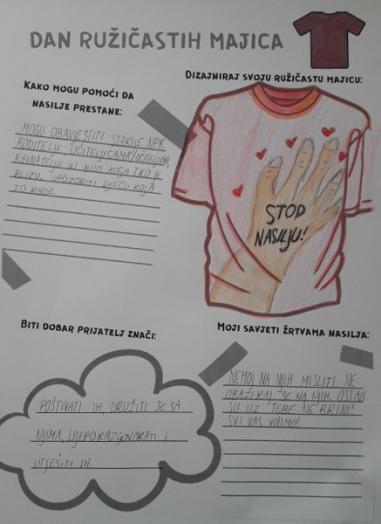 DAN RUŽIČASTIH MAJICA
KAKO MOGU POMOĆI DA
NASILJE PRESTANE:
MOGU OBAVIJESTITI STARIJE NPR.
RODITELJE UČITELJICAMA/UČITELJIMA,
RAVNATELJU ILI BILO KOGA TKO JE
BLIZU. UPOZORITI DJECU KOJA
TO RADE.
DIZAJNIRAJ SVOJU RUŽIČASTU MAJICU:
STOP
NASILJU!
BITI DOBAR PRIJATELJ ZNAČI:
POŠTIVATI IH, DRUŽITI SE SA
NJIMA, LIJEPO RAZGOVARATI I
UTJEŠITI IH.
MOJI SAVJETI ŽRTVAMA NASILJA:
NEMOJ NA NJIH MISLITI, NE
OBAZIRAJ SE NA NJIH.
SU UZ TEBE NE BRINI
SVI VAS VOLIMO!